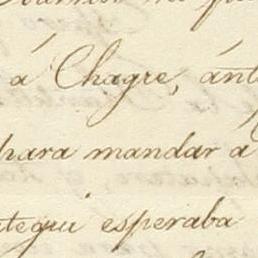 á Chagre, ánt
para mandar á
tegui esperaba